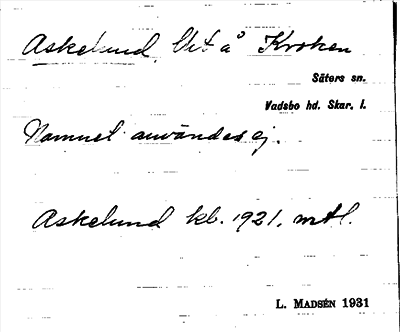 Askelund, Ut å Kroken
Säters sn.
Vadsbo hd. Skar. l.
Namnet användes ej.
Askelund kb. 1921. mtl.
L. MADSÉN 1931